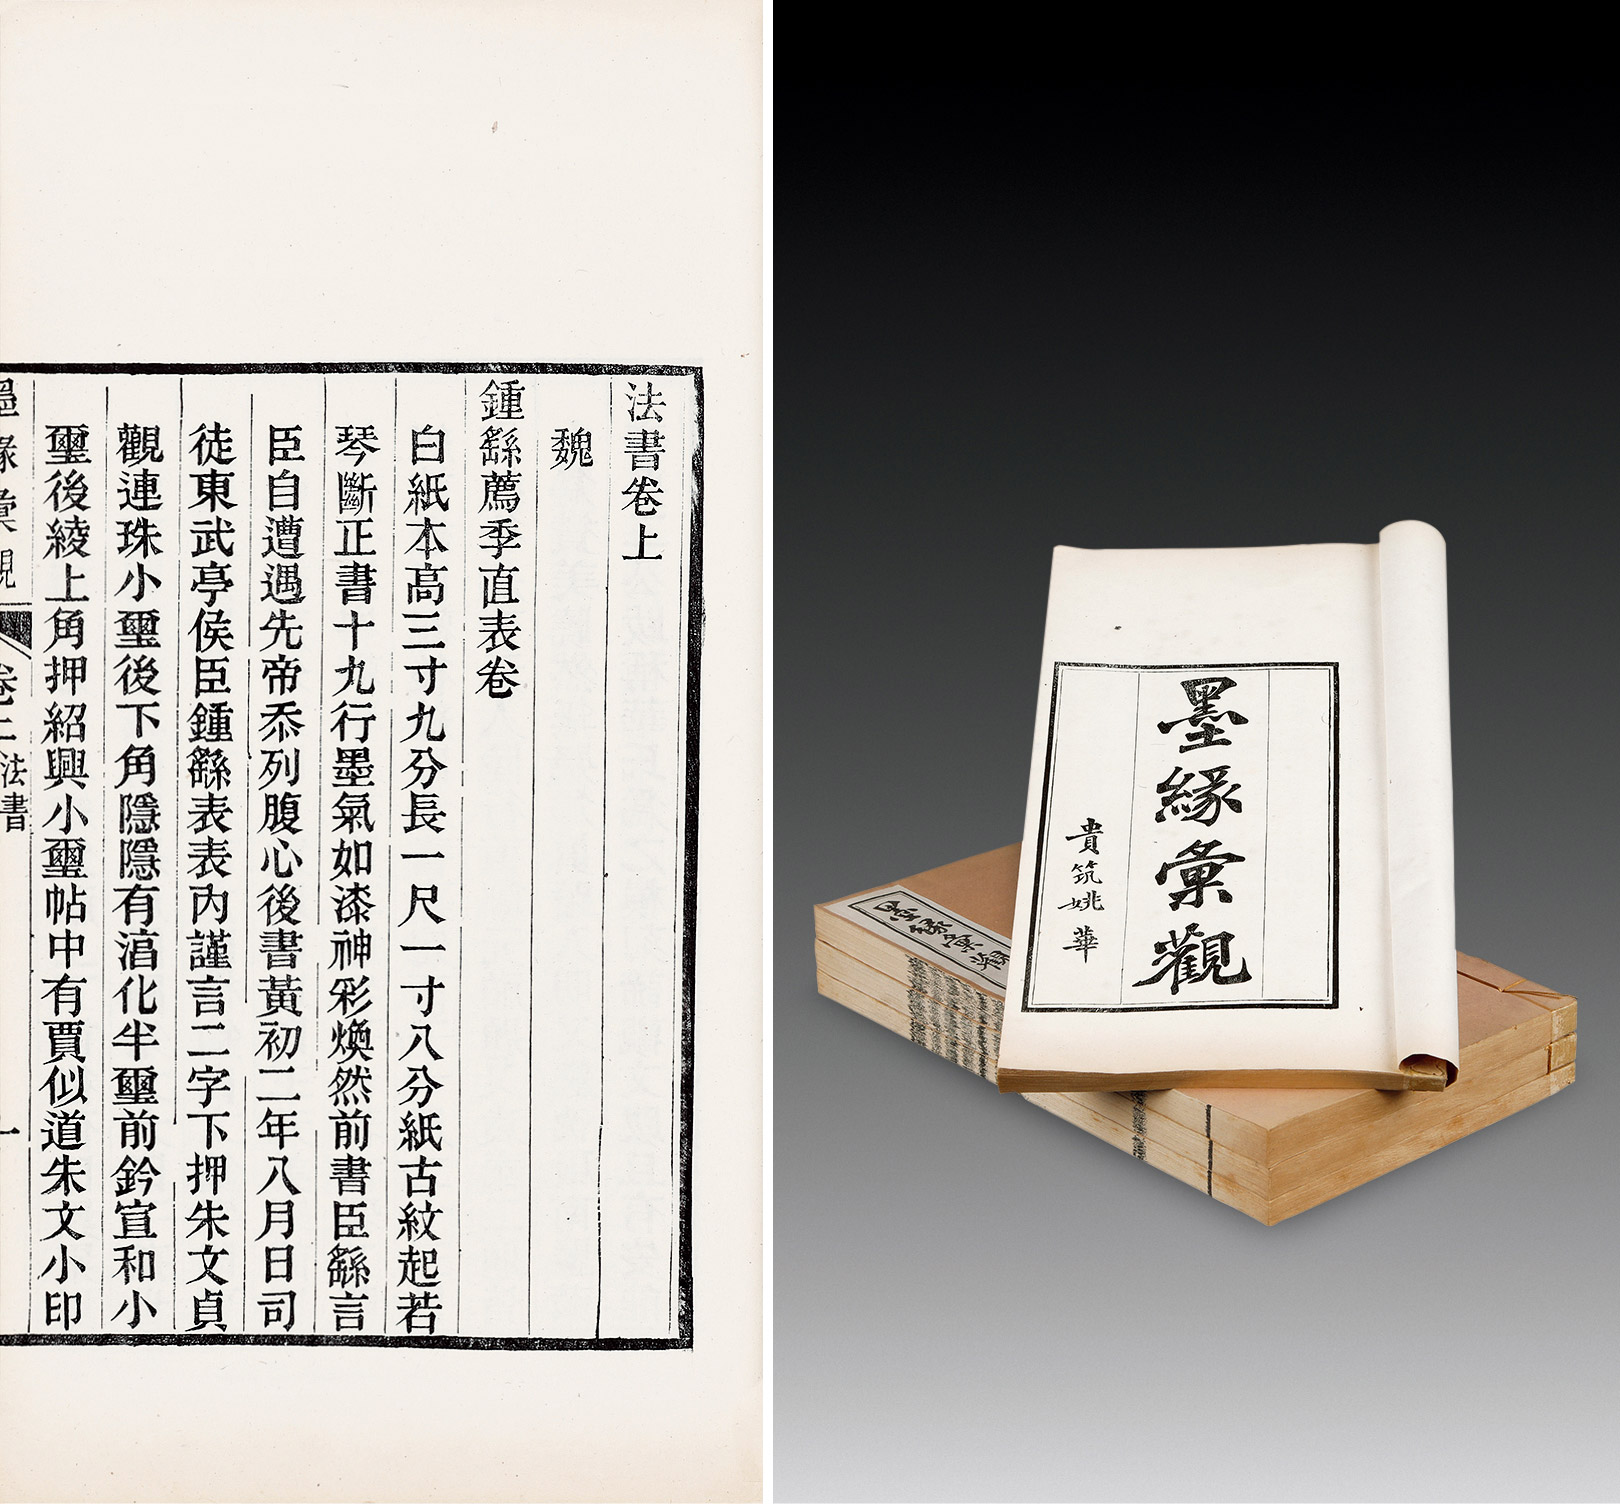 法書卷上
魏
鍾繇薦季直表卷
白紙本高三寸九分長一尺一寸八分紙古紋起若
琴斷正書十九行墨氣如漆神彩煥然前書臣繇言
臣自遭遇先帝忝列腹心後書黃初二年八月日司
徒東武亭侯臣鍾繇表表內謹言二字下押朱文貞
觀連珠小璽後下角隱隱有淯化半璽前鈐宣和小
璽後綾上角押紹興小璽帖中有賈似道朱文小印
墨緣彙觀 卷上 法書 一
墨緣彙觀
貴筑姚華
墨緣彙觀